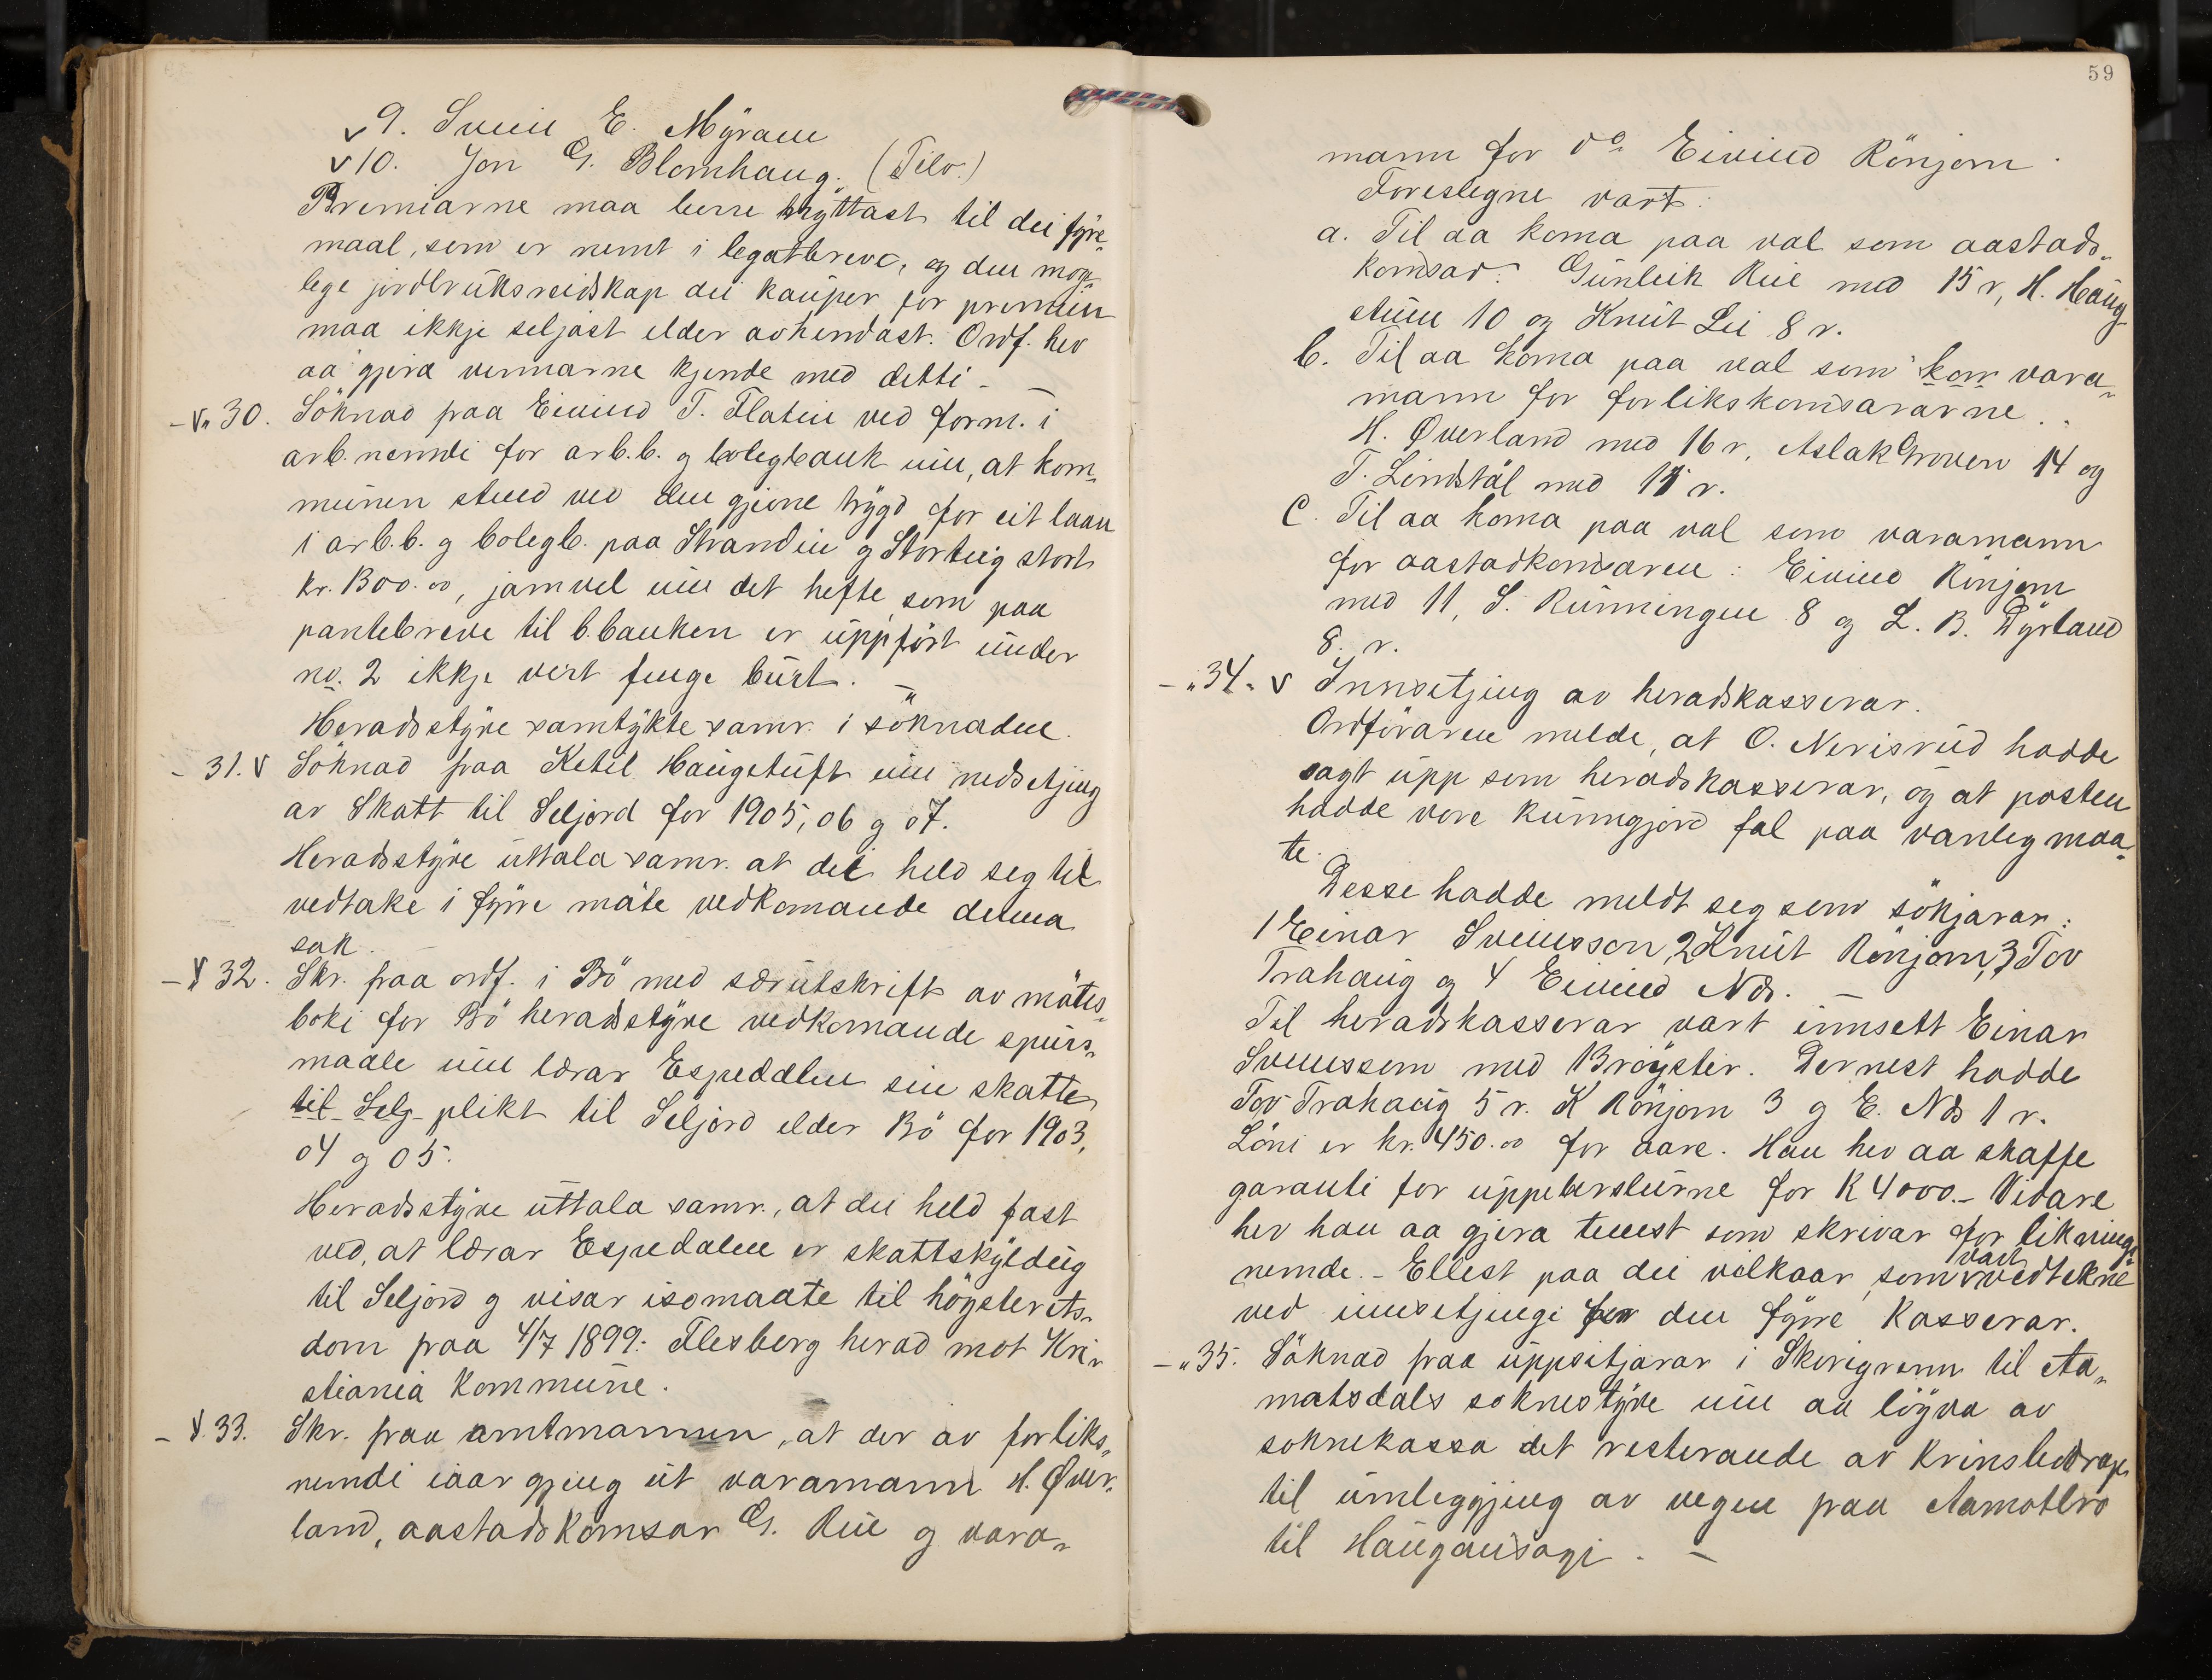 v 9. Svein E. Myraun
v 10. Jon G. Blomhaug. (Telv.)
Premiarne maa berre nyttast til dei fyre-
maal, som er nemt i legatbreve, og den mog-
lege jordbruksreidskap dei kauper for premien
maa ikkje seljast elder avhendast. Ordf. hev
aa gjera vinnarne kjende med detti -
- v„ 30. Söknad fraa Eivind T. Flatin ved form. i
arb.nemdi for arb.b. og bolegbank um, at kom-
munen stend ved den gjevne trygd for eit laan
i arb.b. og bolegb. paa Strandin og Storteig stort
kr. 1300.00, jamvel um det hefte som paa
pantebreve til b.banken er uppfört under
no. 2 ikkje vert fenge burt. -
Heradsstyre samtykte samr. i söknaden.
- 31. v Söknad fraa Ketil Haugetuft um nedsetjing
av Skatt til Seljord for 1905, 06 og 07.
Heradsstyre uttala samr. at dei held seg til
vedtake i fyrre möte vedkomande denna
sak.
- v 32. Skr. fraa ordf. i Bö med serutskrift av mötes-
boki for Bö heradsstyre vedkomande spurs-
maale um lærar Espedalen sin skatte
til Selj- plikt til Seljord elder Bö for 1903,
04 og 05.
Heradsstyre uttala samr., at dei held fast
ved, at lærar Espedalen er skattskyldug
til Seljord og visar isomaate til högsterets-
dom fraa 4/7 1899: Flesberg herad mot Kri-
stiania kommune.
- v. 33. Skr. fraa amtmannen, at der av forliks-
nemdi iaar gjeng ut varamann H. Øver-
land, aastadskomsar G. Rue og vara-
59
mann for do. Eivind Rönjom.
Foreslegne vart:
a. Til aa koma paa val som aastads-
komsar: Gunleik Rue med 15 r, H. Haug
stuen 10 og Knut Lei 8 r.
b. Til aa koma paa val som kom vara-
mann for forlikskomsararne:
H. Øverland med 16 r, Aslak Groven 14 og
T. Lindstöl med 11 r.
C. Til aa koma paa val som varamann
for aastadkomsaren: Eivind Rönjom
med 11, S. Runningen 8 og L. B. Dyrland
8 r.
- „ 34. v Innsetjing av heradskasserar.
Ordföraren melde, at O. Nerisrud hadde
sagt upp som heradskasserar, og at posten
hadde vore kunngjord fal paa vanleg maa-
te.
Desse hadde meldt seg som sökjarar:
1 Einar Sveinsson, 2 Knut Rönjom, 3 Tov
Trahaug og 4 Eivind Nds. -
Til heradskasserar vart innsett Einar
Sveinssom med 13 röyster. Dernest hadde
Tov Trahaug 5 r. K Rönjom 3 og E. Nds 1 r.
Löni er kr. 450.00 for aare. Han hev aa skaffe
garanti for uppebörslurne for K 4000.- Vidare
hev han aa gjera tenest som skrivar for liknings-
nemde. - Ellest paa dei vilkaar, som vart vedtekne
ved innsetjingi for den fyrre Kasserar.
- „ 35. Söknad fraa uppsitjarar i Skorigrenn til Aa-
matsdals soknestyre um aa löyva av
soknekassa det resterande av krinsbidrage
til umleggjing av vegen fraa Aamotbro
til Hauganisagi. -